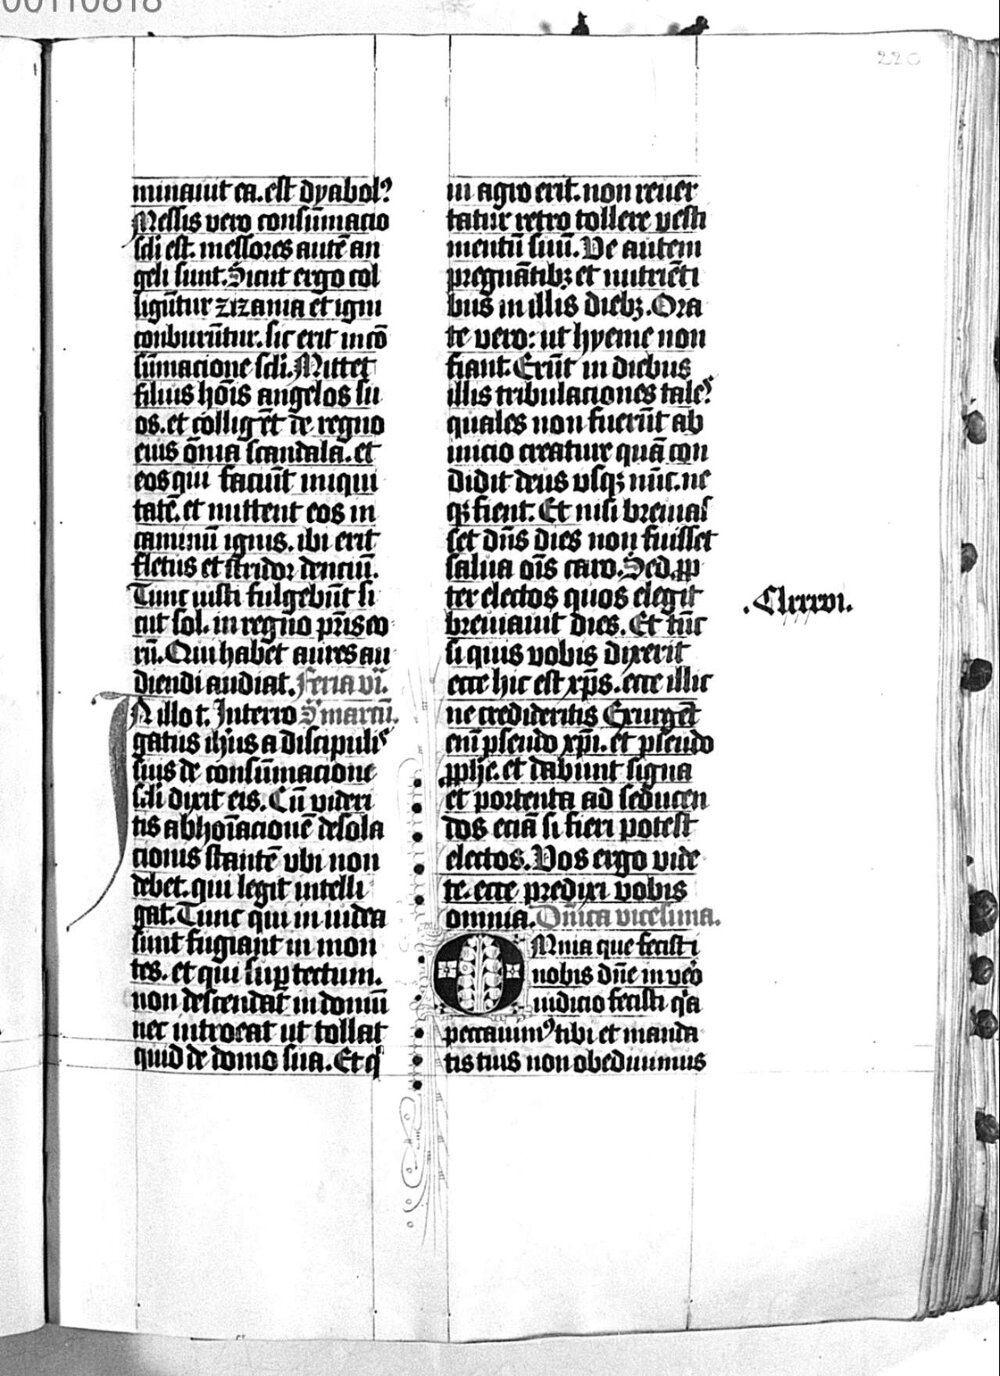 00110818
220
minauit ea. est dyabolꝰ
Messis vero consūmacio
scli est. messores autē an
geli sunt. Sicut ergo col
ligūtur zizania et igni
conburūtur. sic erit in cō
sūmacione scli. Mittet
filius hōis angelos su
os. et colligēt de regno
eius ōnia scandala. et
eos qui faciūt iniqui
tatē. et mittent eos in
caminū ignis. ibi erit
fletus et stridor denciū.
Tunc iusti fulgebūt si
cut sol. in regno pr̄is eo
rū. Qui habet aures au
diendi audiat. Feria vi.
IN illo t. Interro S. marcū.
gatus ihūs a discipulis
suis de consūmacione
scli dixit eis. Cū videri
tis abhoīacionē desola
cionis stantē vbi non
debet. qui legit intelli
gat. Tunc qui in iudea
sunt fugiant in mon
tes. et qui sup̄ tectum.
non descendat in domū
nec introeat ut tollat
quid de domo sua. Et q̄
in agro erit. non reuer
tatur retro tollere vesti
mentū suū. Ve autem
pregnātibꝫ et nutriēti
bus in illis diebꝫ. Ora
te vero: ut hyeme non
fiant. Erūt in diebus
illis tribulaciones tales
quales non fuerūt ab
inicio creature quā con
didit deus vsqꝫ nūc. ne
qꝫ fient. Et nisi breuias
set dn̄s dies non fuisset
salua oīs caro. Sed ꝓp
ter electos quos elegit
breuiauit dies. Et tūc
si quis vobis dixerit
ecce hic est xp̄s. ecce illic
ne credideritis Exurgēt
eni pseudo xp̄i. et pseudo
ꝓphe. et dabunt signa
et portenta ad seducen
dos eciā si fieri potest
electos. Vos ergo vide
te. ecce predixi vobis
omnia. Dn̄ica vicesima.
OMnia que fecisti
nobis dn̄e in vero
iudicio fecisti q̄a
peccauimꝰ tibi et manda
tis tuis non obediuimus
.Clxxxvi.